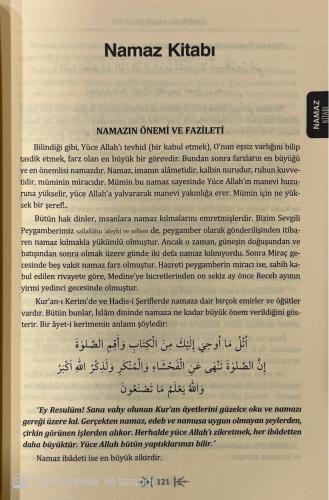 Namaz Kitabı
NAMAZ
KİTABI
NAMAZIN ÖNEMİ VE FAZİLETİ
Bilindiği gibi, Yüce Allah'ı tevhid (bir kabul etmek), O'nun eşsiz varlığını bilip
tasdik etmek, farz olan en büyük bir görevdir. Bundan sonra farzların en büyüğü
ve en önemlisi namazdır. Namaz, imanın alâmetidir, kalbin nurudur, ruhun kuvve-
tidir, müminin miracıdır. Mümin bu namaz sayesinde Yüce Allah'ın manevi huzu-
runa yükselir, yüce Allah'a yalvararak manevi yakınlığa erer. Mümin için ne yük-
sek bir şeref!..
Bütün hak dinler, insanlara namaz kılmalarını emretmişlerdir. Bizim Sevgili
Peygamberimiz sallallâhu 'aleyhi ve sellem de, peygamber olarak gönderilişinden itiba-
ren namaz kılmakla yükümlü olmuştur. Ancak o zaman, güneşin doğuşundan ve
batışından sonra olmak üzere günde iki defa namaz kılınıyordu. Sonra Miraç ge-
cesinde beş vakit namaz farz olmuştur. Hazreti peygamberin miracı ise, sahih ka-
bul edilen rivayete göre, Medine'ye hicretlerinden on sekiz ay önce Receb ayının
yirmi yedinci gecesinde olmuştur.
Kur'an-ı Kerim'de ve Hadis-i Şeriflerde namaza dair birçok emirler ve öğütler
vardır. Bütün bunlar, İslâm dininde namaza ne kadar büyük önem verildiğini gös-
terir. Bir âyet-i kerimenin anlamı şöyledir:
اُتْلُ مَا اُوحِيَ اِلَيْكَ مِنَ الْكِتَابِ وَاَقِمِ الصَّلٰوةَ
اِنَّ الصَّلٰوةَ تَنْهٰى عَنِ الْفَحْشَاءِ وَالْمُنْكَرِ وَلَذِكْرُ اللهِ اَكْبَرُ
وَاللهُ يَعْلَمُ مَا تَصْنَعُونَ
"Ey Resulüm! Sana vahy olunan Kur'an âyetlerini güzelce oku ve namazı
gereği üzere kıl. Gerçekten namaz, edeb ve namusa uygun olmayan şeylerden,
çirkin görünen işlerden alıkor. Herhalde yüce Allah'ı zikretmek, her ibâdetten
daha büyüktür. Yüce Allah bütün yaptıklarınızı bilir."
Namaz ibâdeti ise en büyük zikirdir.
121